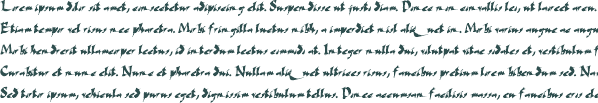 Lorem ipsum dolor sit amet, consectetur adipiscing elit. Suspendisse ut justo diam. Donec non convallis leo, ut laoreet arcu.
Etiam tempor vel risus nec pharetra. Morbi fringilla luctus nibh, a imperdiet nisl aliquet in. Morbi varius augue ac augue
Morbi hendrerit ullamcorper lectus, id interdum lectus euismod at. Integer nulla dui, volutpat vitae sodales et, vestibulum
Curabitur et nunc elit. Nunc et pharetra dui. Nullam aliquet ultrices risus, faucibus pretium lorem bibendum sed.
Sed tortor ipsum, vehicula sed purus eget, dignissim vestibulum tellus. Donec accumsan facilisis massa, eu faucibus eros